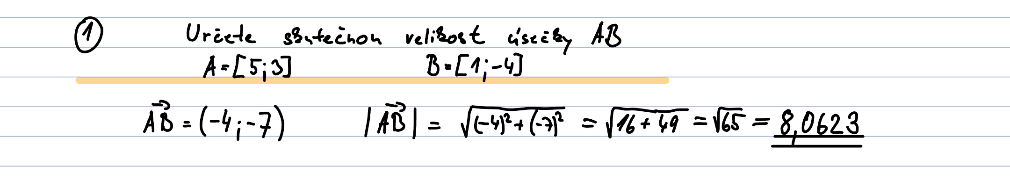 ① Určete skutečnou velikost úsečky AB
A=[5;3] B=[1;-4]
\vec{AB} = (-4;-7) |\vec{AB}| = √((-4)²+(-7)²) = √(16+49) = √65 = 8,0623